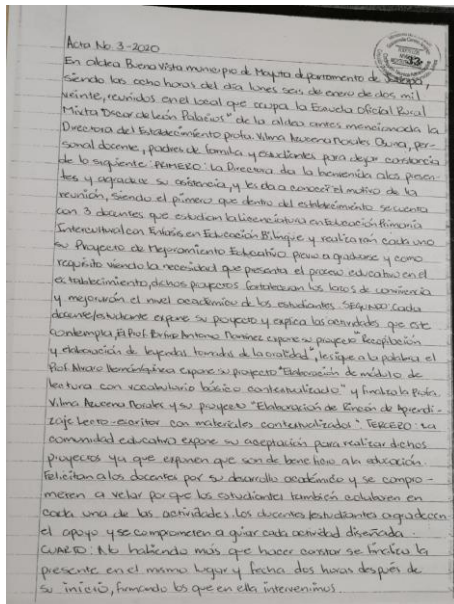 Acta No. 3-2020
33
En aldea Buena Vista municipio de Moyuta departamento de Jutiapa,
siendo las ocho horas del día lunes seis de enero de dos mil
veinte, reunidos en el local que ocupa la Escuela Oficial Rural
Mixta "Oscar de León Palacios" de la aldea antes mencionada la
Directora del Establecimiento profa. Vilma Azucena Morales Osuna, per-
sonal docente, padres de familia y estudiantes para dejar constancia
de lo siguiente: PRIMERO: La Directora da la bienvenida a los presen-
tes y agradece su asistencia, y les da a conocer el motivo de la
reunión, siendo el primero que dentro del establecimiento se cuenta
con 3 docentes que estudian la licenciatura en Educación Primaria
Intercultural con Enfasis en Educación Bilingüe y realizaran cada uno
su Proyecto de Mejoramiento Educativo previo a graduarse y como
requisito viendo la necesidad que presenta el proceso educativo en el
establecimiento, dichos proyectos fortalezcan los lazos de convivencia
y mejorarán el nivel académico de los estudiantes. SEGUNDO: Cada
docente/estudiante expone su proyecto y explica las actividades que este
contempla, El Prof. Antonio expone su proyecto "Recopilación
y elaboración de leyendas tomadas de la oralidad", le sigue a la palabra el
Prof. Alvaro expone su proyecto "Elaboración de módulo de
lectura con vocabulario básico contextualizado" y finaliza la Profa.
Vilma Azucena Morales y su proyecto "Elaboración de Rincón de Aprendi-
zaje Lecto-escritor con materiales contextualizados" TERCERO: La
comunidad educativa expone su aceptación para realizar dichos
proyectos ya que exponen que son de beneficio a la educación.
Felicitan a los docentes por su desarrollo académico y se compro-
meten a velar porque los estudiantes también colaboren en
cada una de las actividades, los docentes/estudiantes agradecen
el apoyo y se comprometen a guiar cada actividad diseñada.
CUARTO: No habiendo más que hacer constar se finaliza la
presente en el mismo lugar y fecha dos horas después de
su inicio, firmando los que en ella intervenimos.